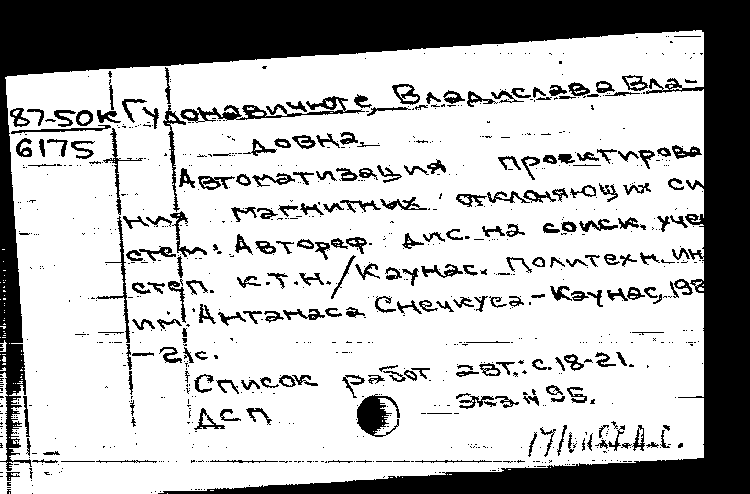 87-50к Гудонавичюте, Владислава Вла-
6175 довна.
Автоматизация проектирова
ния магнитных отклоняющих си
стем: Автореф. дис. на соиск. учен
степ. к.т.н. / Каунас. политехн. ин
им. Антанаса Снечкуса.- Каунас, 198
- 21с.
Список работ авт.: с. 18-21.
ДСП Экз. N 95.